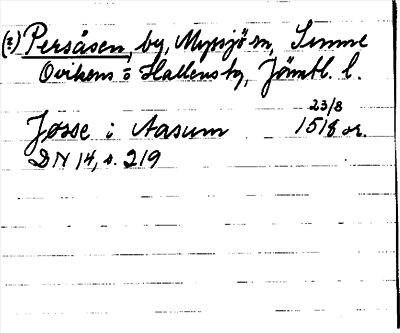 (?) Persåsen, by, Myssjö sn, Sunne
Ovikens o Hallens tg, Jämtl. l.
23/8
Jösse i Aasum 1518 or.
DN 14, s. 219